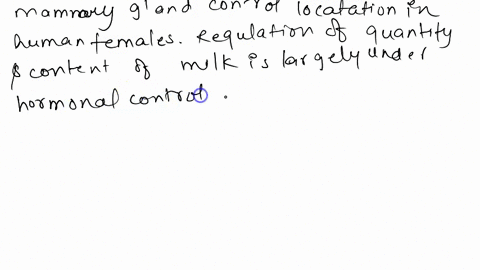 mammary gland control locatation in
human females. Regulation of quantity
& content of milk is largely under
hormonal control .